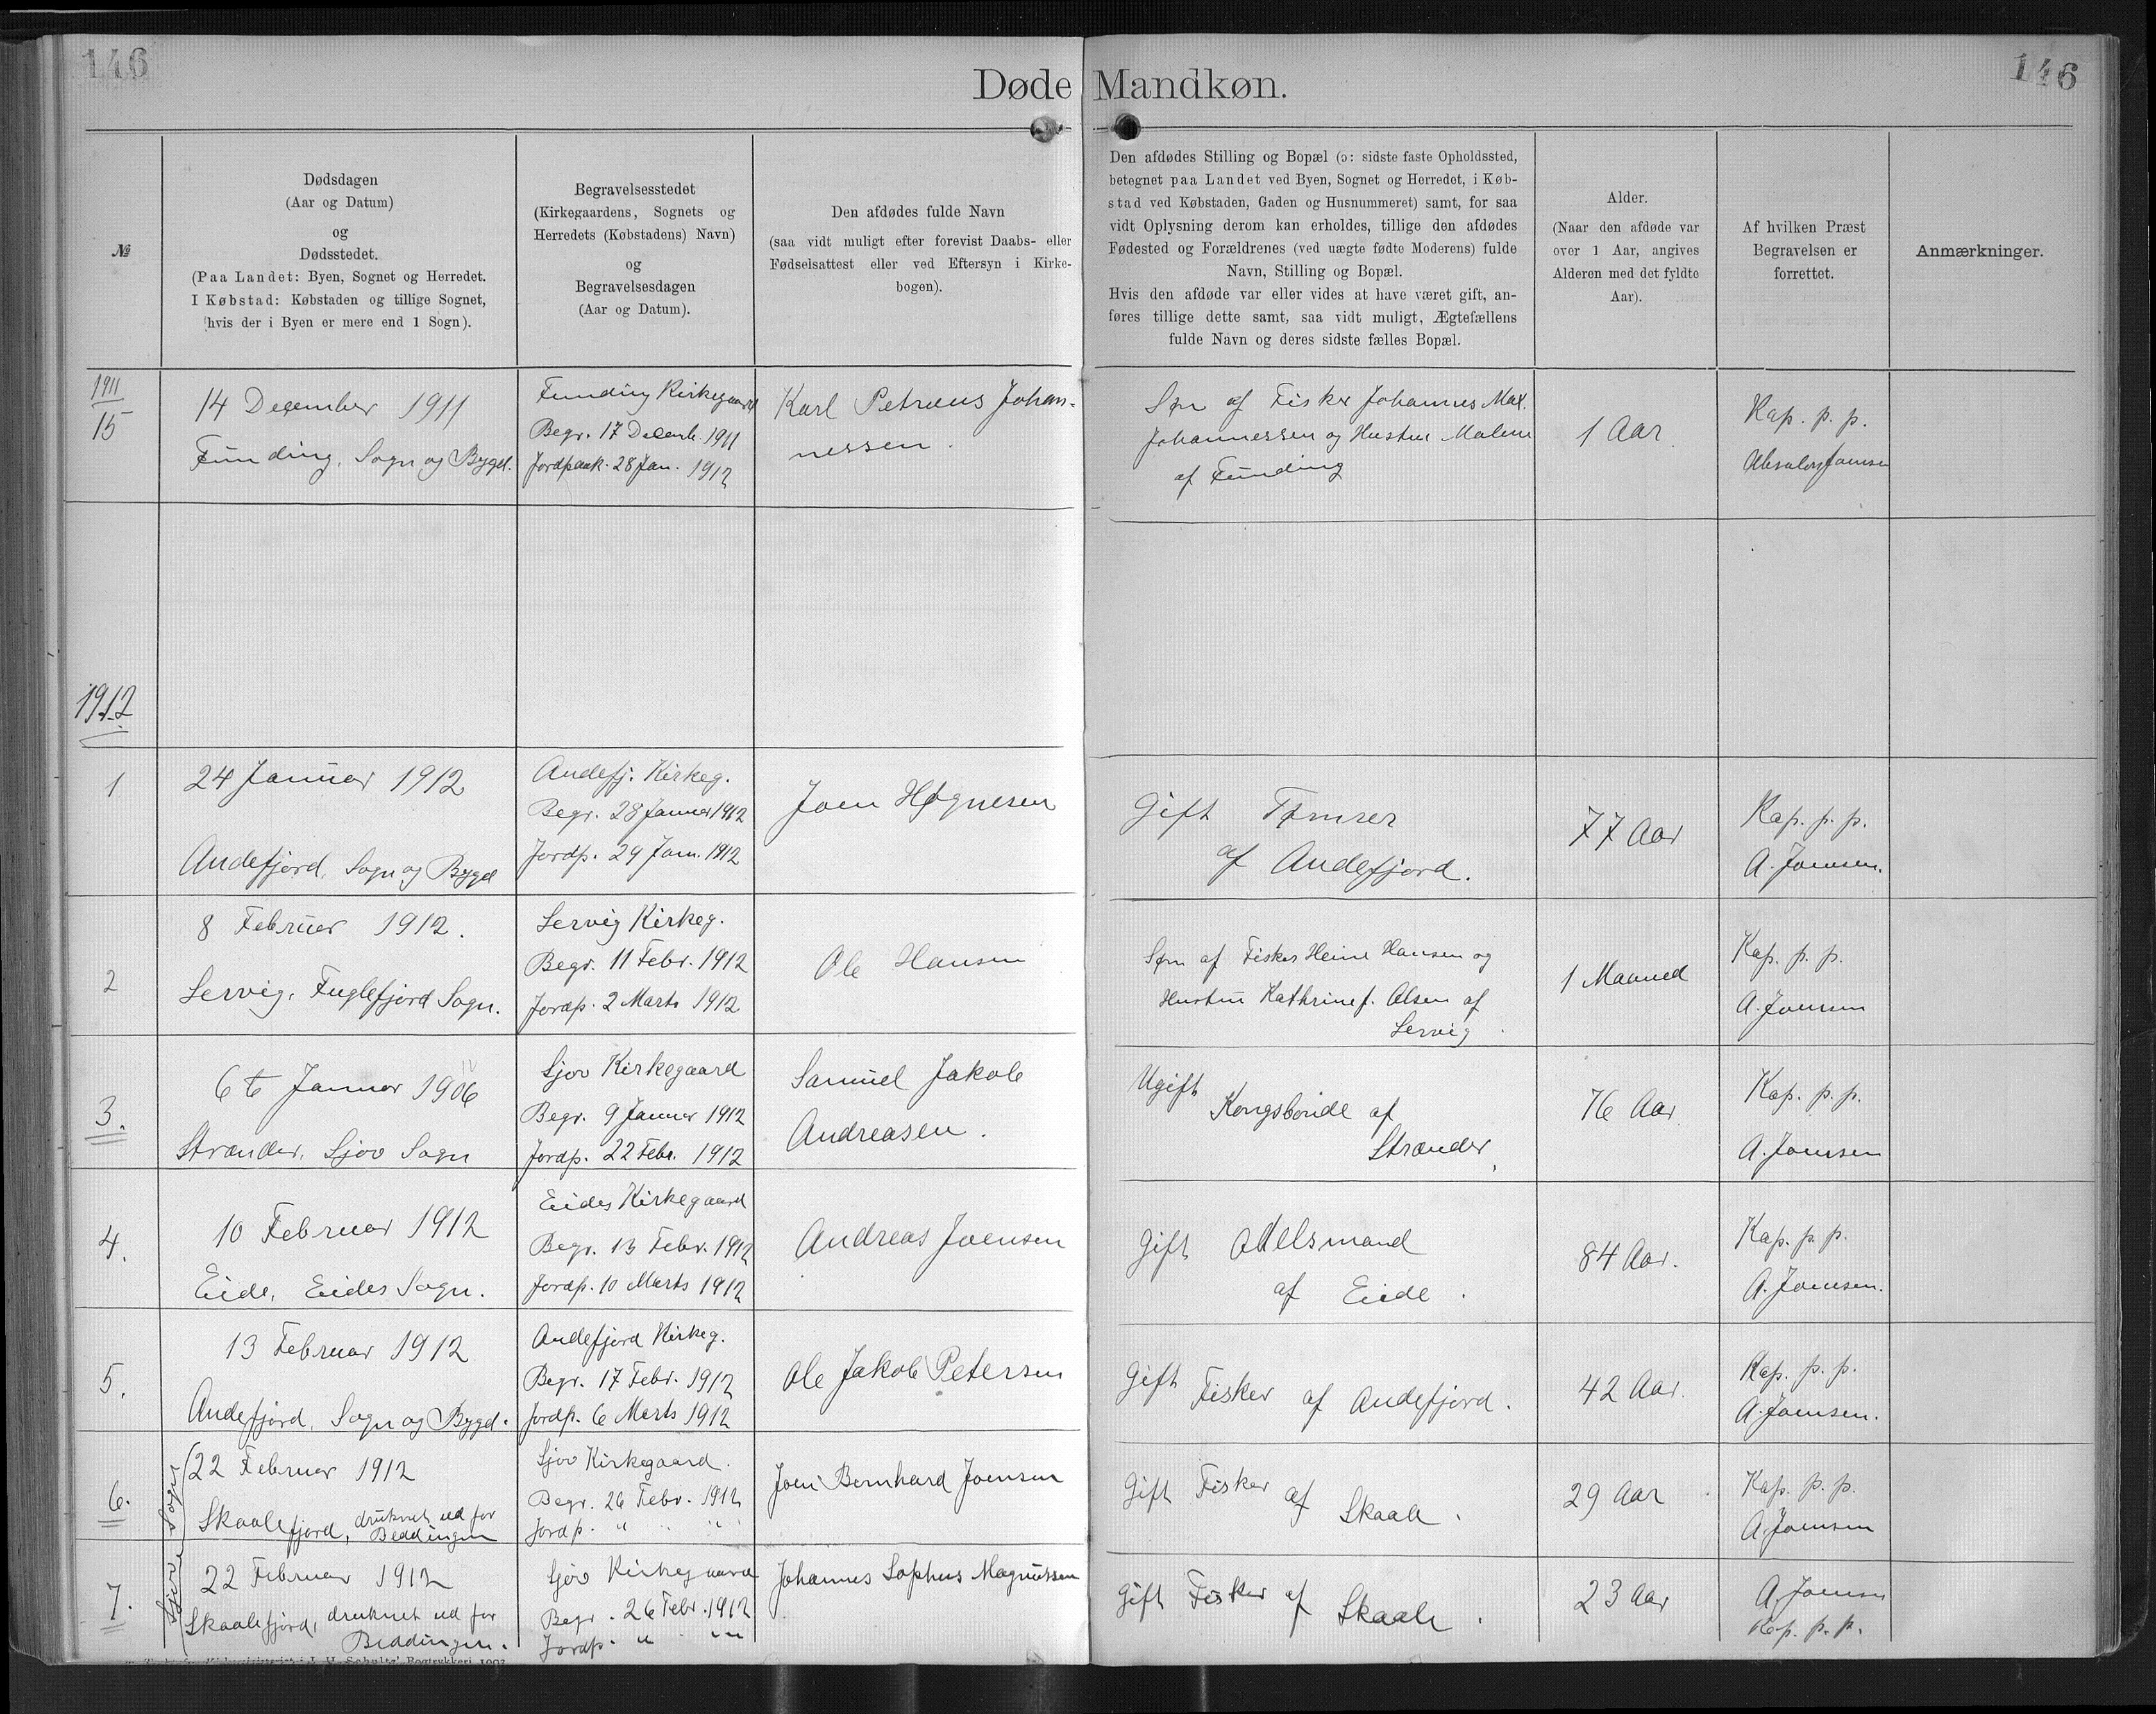 146
146
Døde Mandkøn.
№
Dødsdagen
(Aar og Datum)
og
Dødsstedet.
(Paa Landet: Byen, Sognet og Herredet.
I Købstad: Købstaden og tillige Sognet,
(hvis der i Byen er mere end 1 Sogn).
Begravelsesstedet
(Kirkegaardens, Sognets og
Herredets (Købstadens) Navn)
og
Begravelsesdagen
(Aar og Datum).
Den afdødes fulde Navn
(saa vidt muligt efter forevist Daabs- eller
Fødselsattest eller ved Eftersyn i Kirke-
bogen).
Den afdødes Stilling og Bopæl (ɔ: sidste faste Opholdssted,
betegnet paa Landet ved Byen, Sognet og Herredet, i Køb-
stad ved Købstaden, Gaden og Husnummeret) samt, for saa
vidt Oplysning derom kan erholdes, tillige den afdødes
Fødested og Forældrenes (ved uægte fødte Moderens) fulde
Navn, Stilling og Bopæl.
Hvis den afdøde var eller vides at have været gift, an-
føres tillige dette samt, saa vidt muligt, Ægtefællens
fulde Navn og deres sidste fælles Bopæl.
Alder.
(Naar den afdøde var
over 1 Aar, angives
Alderen med det fyldte
Aar).
Af hvilken Præst
Begravelsen er
forrettet.
Anmærkninger.
1911
15
14 December 1911
Funding, Sogn og Bygd.
Funding Kirkegaard
Begr. 17 Decemb. 1911
Jordpaak. 28 Jan. 1912
Karl Petræus Johan-
nessen.
Søn af Fisker Johannes Max.
Johannessen og Hustru Malene
af Funding
1 Aar
Kap. p. p.
Absalon Joensen
1912
1
24 Januar 1912
Andefjord, Sogn og Bygd
Andefj. Kirkeg.
Begr. 28 Januar 1912
Jordp. 29 Jan. 1912
Joen Høgnesen
Gift Tømrer
af Andefjord.
77 Aar
Kap. p. p.
A. Joensen.
2
8 Februar 1912.
Lervig, Fuglefjord Sogn.
Lervig Kirkeg.
Begr. 11 Febr. 1912
Jordp. 2 Marts 1912
Ole Hansen
Søn af Fisker Heine Hansen og
Hustru Kathrine f. Olsen af
Lervig.
1 Maaned
Kap. p. p.
A. Joensen
3.
6te Januar 1906
12
Strænder, Sjov Sogn
Sjov Kirkegaard
Begr. 9 Januar 1912
Jordp. 22 Febr. 1912
Samuel Jakob
Andreasen.
Ugift
Kongsbonde af
Strænder
76 Aar
Kap. p. p.
A. Joensen
4.
10 Februar 1912
Eide, Eides Sogn.
Eides Kirkegaard
Begr. 13 Febr. 1912
Jordp. 10 Marts 1912
Andreas Joensen
Gift Odelsmand
af Eide.
84 Aar.
Kap. p. p.
A. Joensen.
5.
13 Februar 1912
Andefjord, Sogn og Bygd.
Andefjord Kirkeg.
Begr. 17 Febr. 1912
Jordp. 6 Marts 1912
Ole Jakob Petersen
Gift Fisker af Andefjord.
42 Aar.
Kap. p. p.
A. Joensen.
6.
22 Februar 1912
Skaalefjord, druknet ud for
Beddingen
Sjov Kirkegaard.
Begr. 26 Febr. 1912
Jordp. " " "
Joen Bernhard Joensen
Gift Fisker af Skaale.
29 Aar
Kap. p. p.
A. Joensen
7.
22 Februar 1912
Skaalefjord, druknet ud for
Beddingen.
Sjov Kirkegaard
Begr. 26 Febr. 1912
Jordp. " " "
Johannes Sophus Magnussen
Gift Fisker af Skaale.
23 Aar
A. Joensen
Kap. p. p.